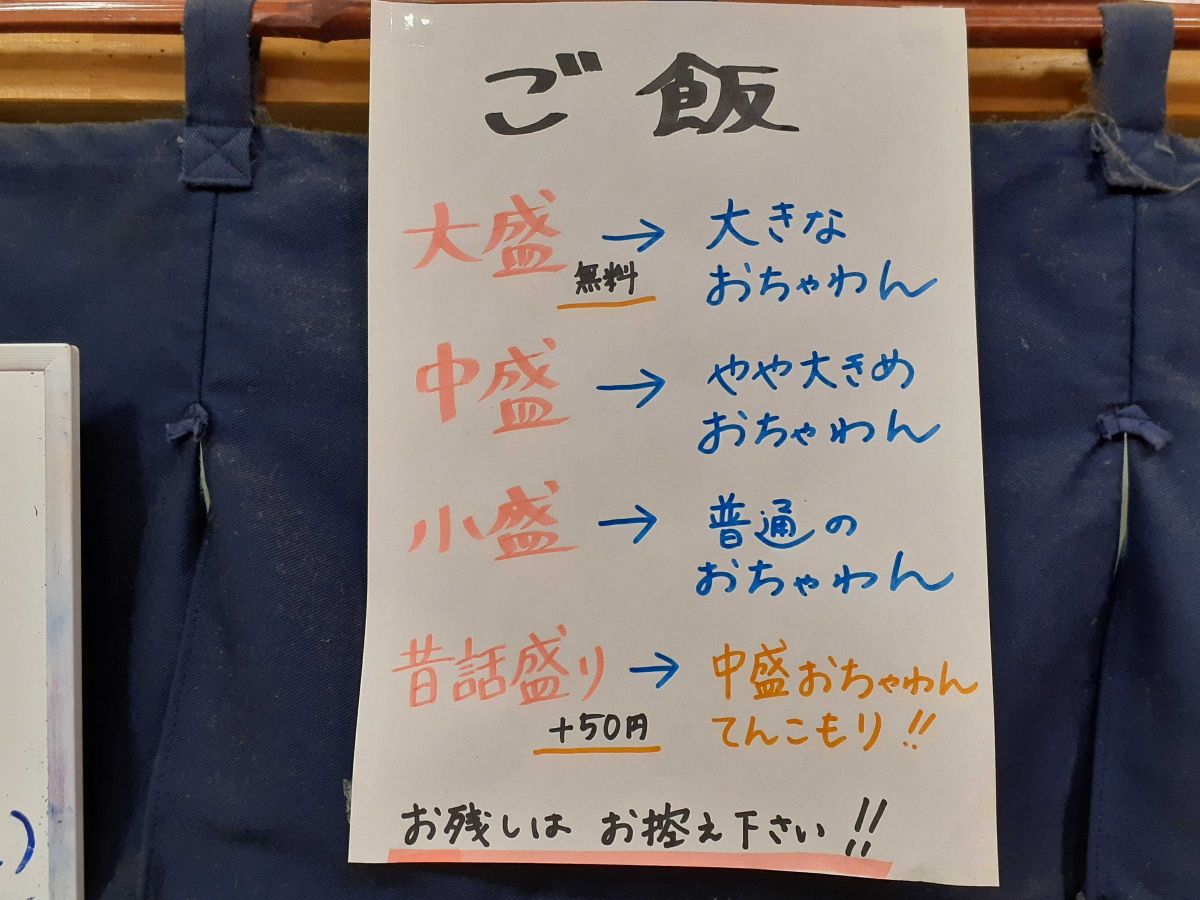 ご飯
大盛 → 大きな
無料 おちゃわん
中盛 → やや大きめ
おちゃわん
小盛 → 普通の
おちゃわん
昔話盛り → 中盛おちゃわん
+50円 てんこもり!!
お残しは お控え下さい!!